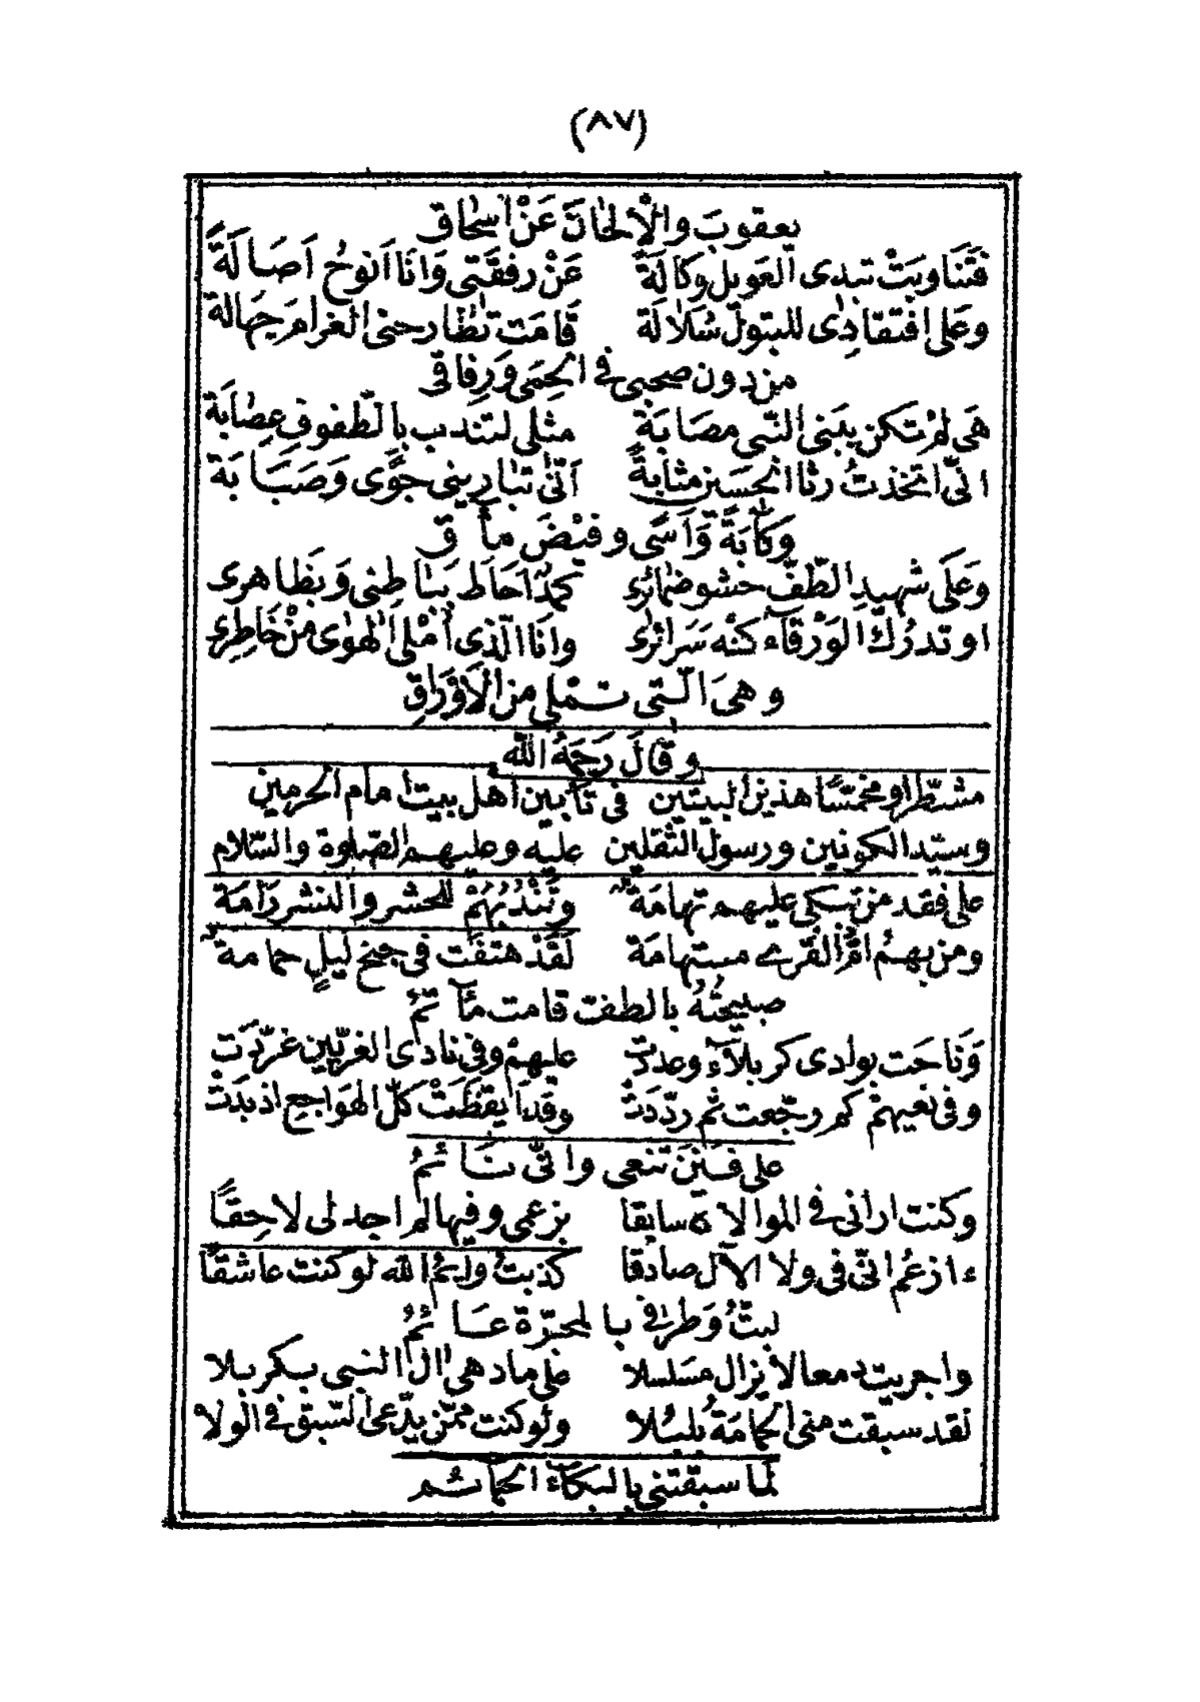 (٨٧)
يعقوبَ والْاَلحٰانَ عَنْ اسحٰاقِ
فَتَنَا وبَتْ تبدى العَويل وكالَةً عَنْ رفقَتى وَانَا اَنوحُ اَصَالَةً
وعَلى افتقادِى للبتولِ سُلالَة قَامَت تُطٰارحنى الغرامَ جَهالة
من دون صحبى فى الحِمَى وَرِفاقى
هَى لمْ تكن ببَنى النّبى مصَابَةً مثلى لتندب بالطّفوفِ عِصٰابَة
انّى اتخذتُ رثا الحسَين مثابةً اَنّىٰ تبٰارينى جوًّى وَصَبَابَة
وَكٰابَةً وَّاَسًى وفيْضَ مآقى
وَعَلَى شهيدِ الطّفّ حشو ضمٰائرى كمدٌ احَاط ببٰاطِنى وَبظٰاهرى
او تدرُكُ الوَرْقآء كنْه سَرَائرى وانَا الّذى اُمْلى الهوٰى منْ خٰاطِرى
وهىَ الّتى تُملى من الْاَوْرَاقِ
وقالَ رَحمَهُ اللّه
مشطّرا ومخمّسًا هذين البيتين فى تابين اهل بيت امام الحرمين
وسيّد الكونين ورسول الثقلين عليه وعليهم الصّلوة والسّلام
على فقد من تبكى عليهم تهامَة وتَنْدُبُهُمْ للحشر والنشر رَامَة
ومن بهمُ امّ القرى مستهامَة لَقَدْ هتفَت فى جنح ليلٍ حمامة
صبيحتُهُ بالطف قامت مآتمُ
وَنَاحَت بوادى كربلآء وعددت عليهمْ وفى نادى الغريّين غرّدَت
وفى نعيهمْ كم رجّعت ثم ردّدَتْ وقد اَيقظَتْ كلّ الهَواجع اذ بدَتْ
على فنَن تنعى وانّى نَائمُ
وكنت ارانى فى الموالاة سابقا بزعمى وفيها لم اجد لى لاحِقًا
ءازعُم انّى فى ولا الآل صادقا كذبتُ وايمُ اللّه لو كنت عاشقًا
لبتُّ وَطرفى بالمجرّة عَائمُ
واجريت دمعا لا يزال مسَلسلا على ما دهى اٰل النّبى بكربلا
لقد سبقت منى الحمامَةُ بلبُلا ولو كنت ممّن يدّعى السّبق فى الولا
لَما سبقتنى بالبكآء الحمائم